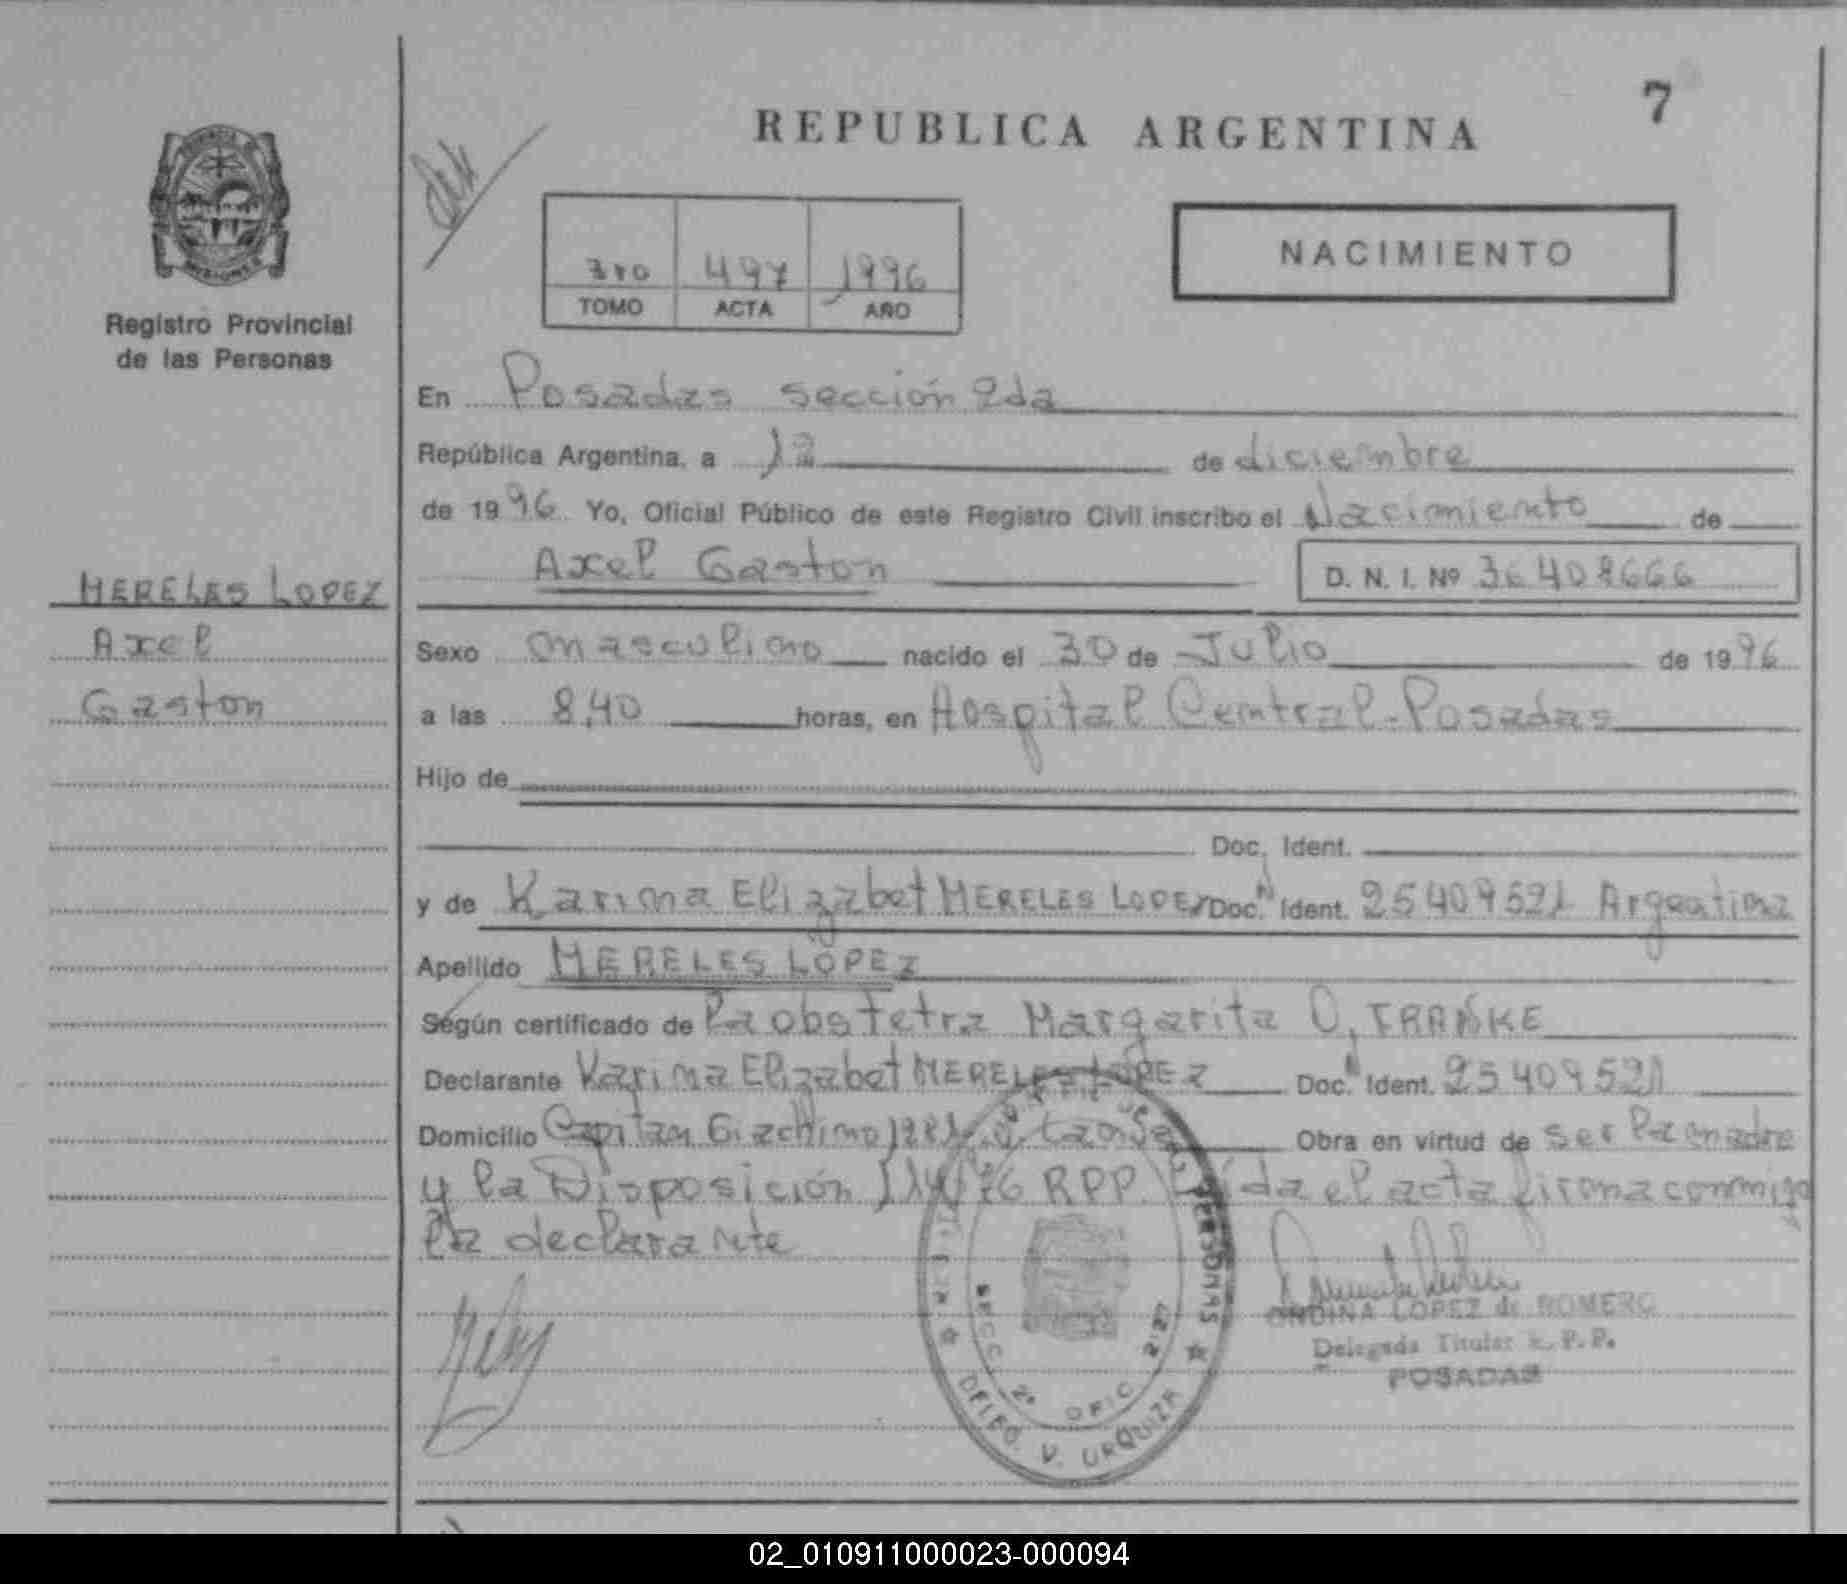 7
REPUBLICA ARGENTINA
NACIMIENTO
3ro 497 1996
TOMO ACTA AÑO
Registro Provincial
de las Personas
En Posadas sección 2da
República Argentina, a 12 de diciembre
de 1996 Yo, Oficial Público de este Registro Civil inscribo el Nacimiento de
Axel Gaston D. N. I. Nº 36408666
MERELES LOPEZ
Axel
Gaston
Sexo masculino nacido el 30 de Julio de 1996
a las 8,40 horas, en Hospital Central-Posadas
Hijo de
Doc. Ident.
y de Karina Elizabet MERELES LOPEZ Doc. Ident. 25409521 Argentina
Apellido MERELES LOPEZ
Según certificado de la obstetra Margarita O, FRANKE
Declarante Karina Elizabet MERELES LOPEZ Doc. Ident. 25409521
Domicilio Capitan Giachino Obra en virtud de ser la madre
y la Disposición RPP. Leída el acta firma conmigo
la declarante
PERSONAS
SECC. 2ª OFIC
DELEG. V. URQUIZA
ONDINA LOPEZ de ROMERO
Delegada Titular R. P. P.
POSADAS
02_010911000023-000094